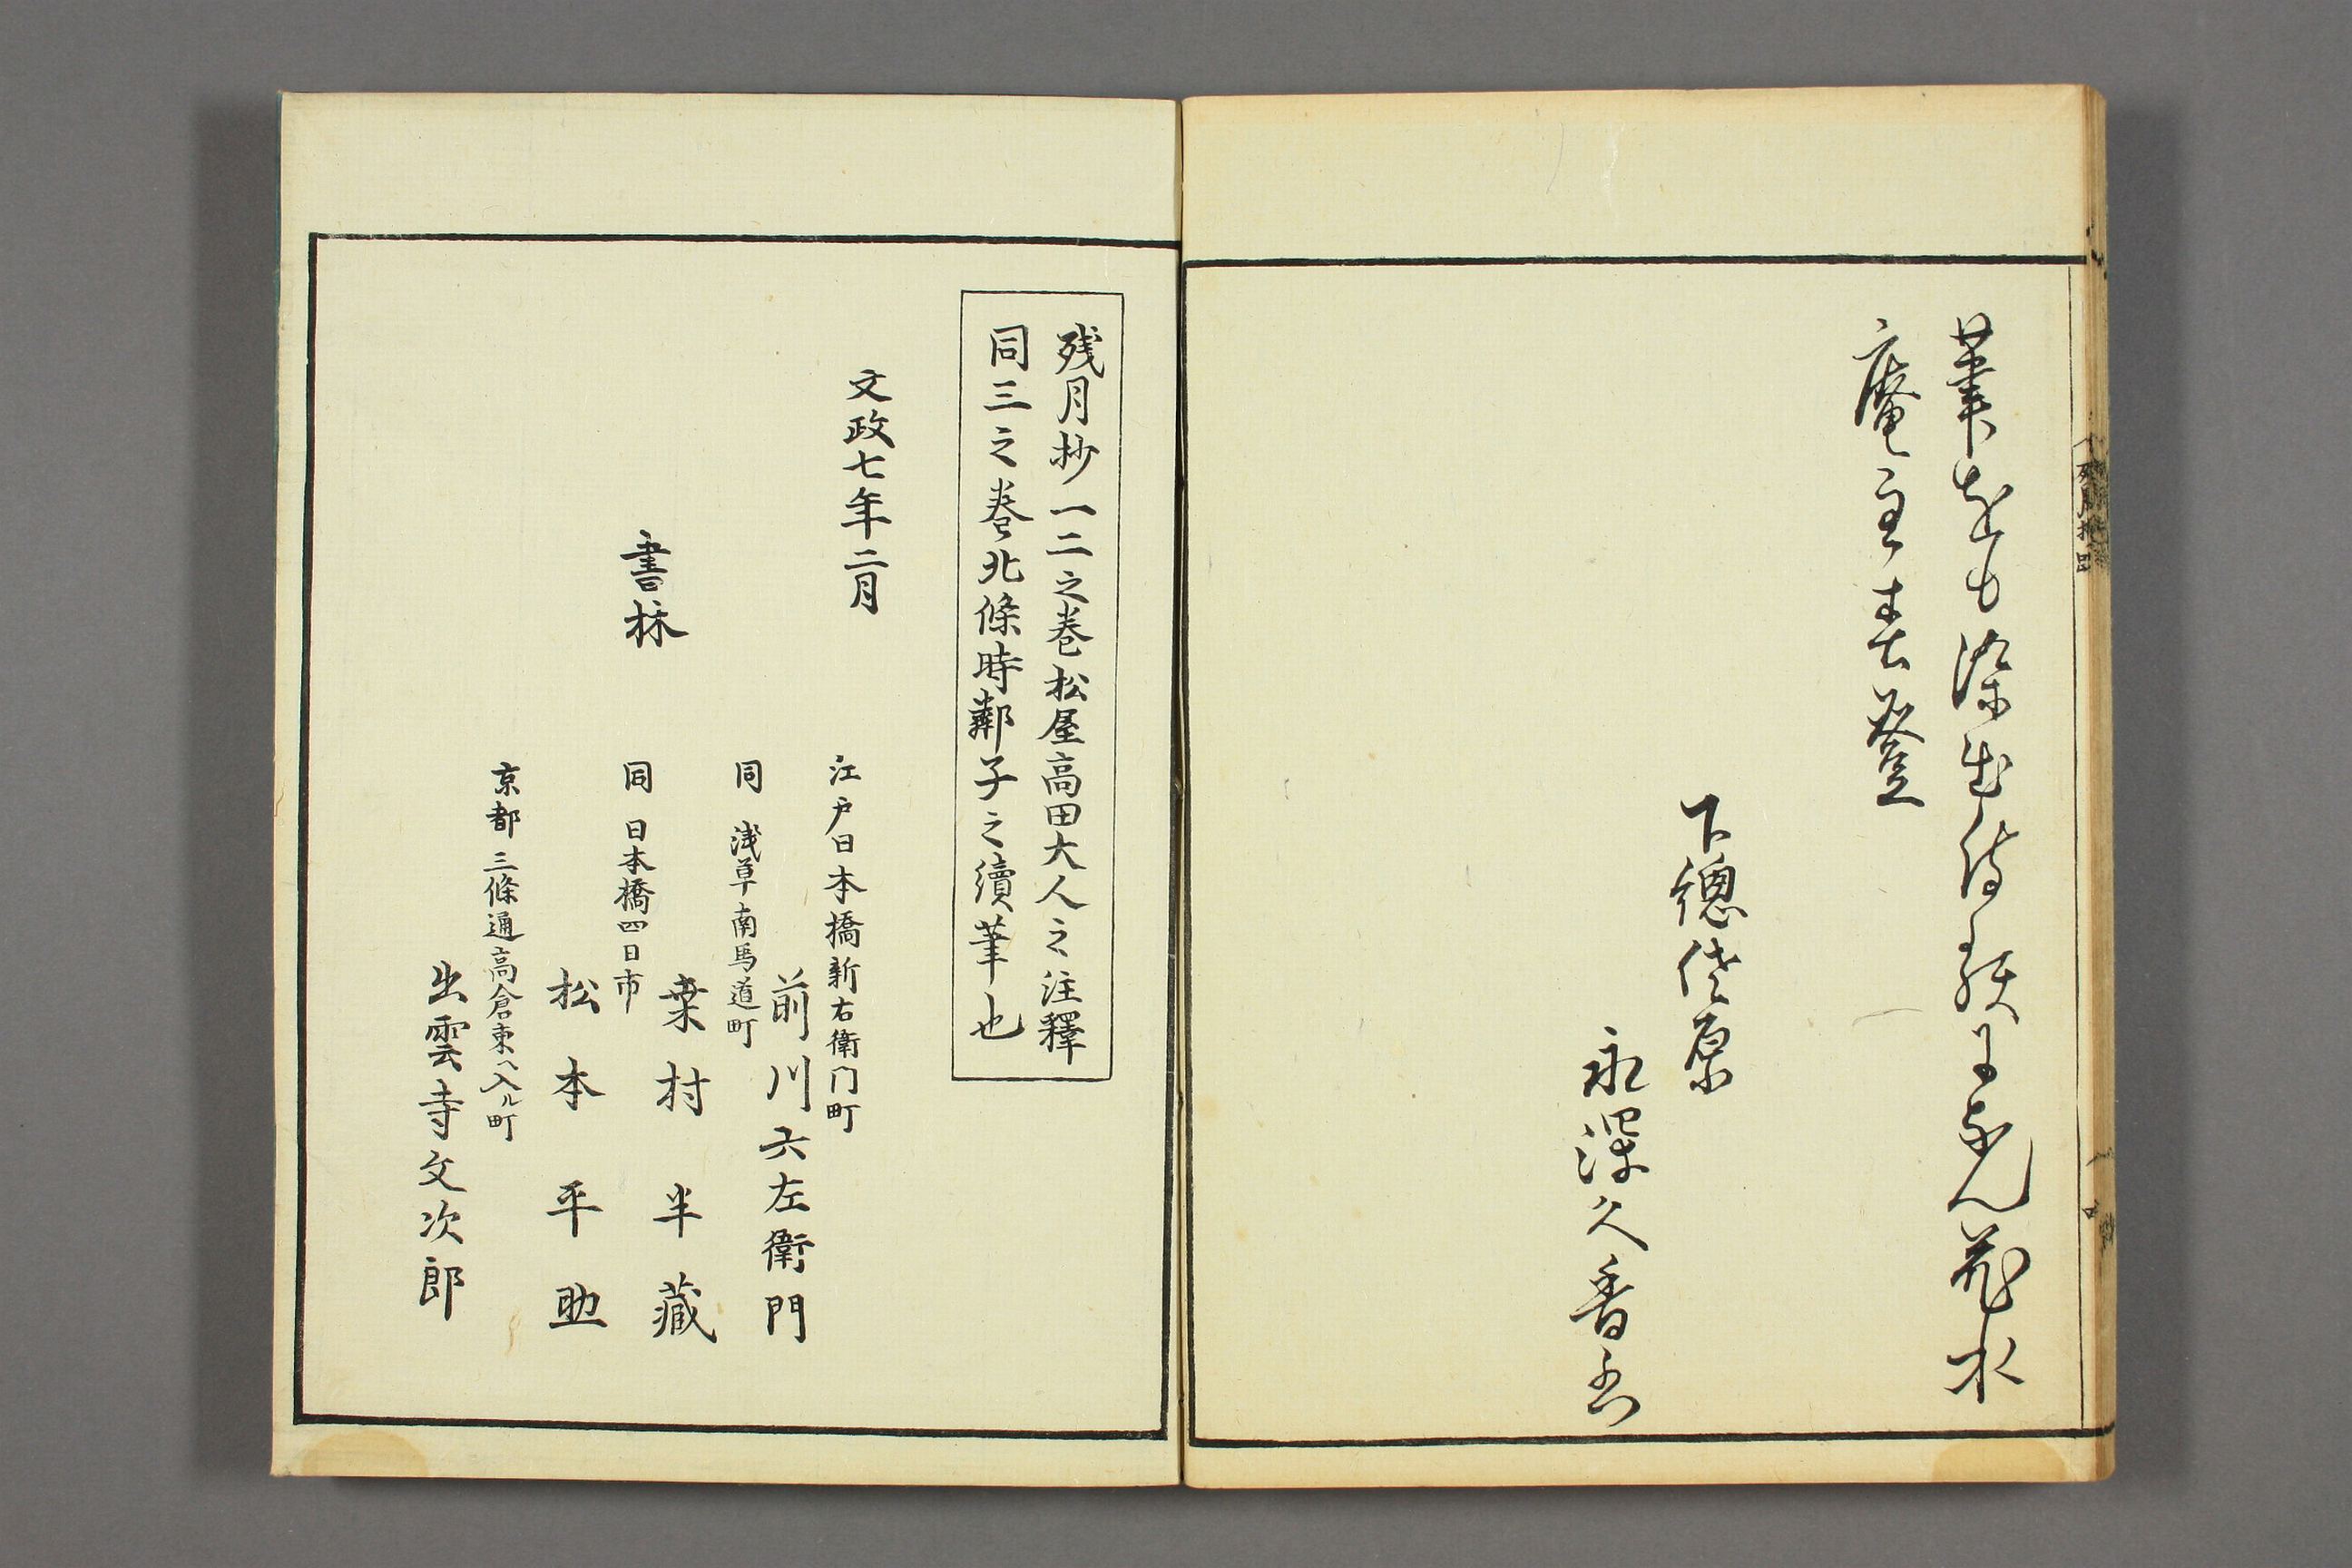 筆をも染出侍になん花水
庵主春登
下總佐原
永澤久香書
残月抄一二之巻松屋高田大人之注釋
同三之巻北條時鄰子之續筆也
文政七年二月
書林
江戸日本橋新右衛门町
前川六左衛門
同 浅草南馬道町
葉村半蔵
同 日本橋四日市
松本平助
京都 三條通高倉東ヘ入ル町
出雲寺文次郎